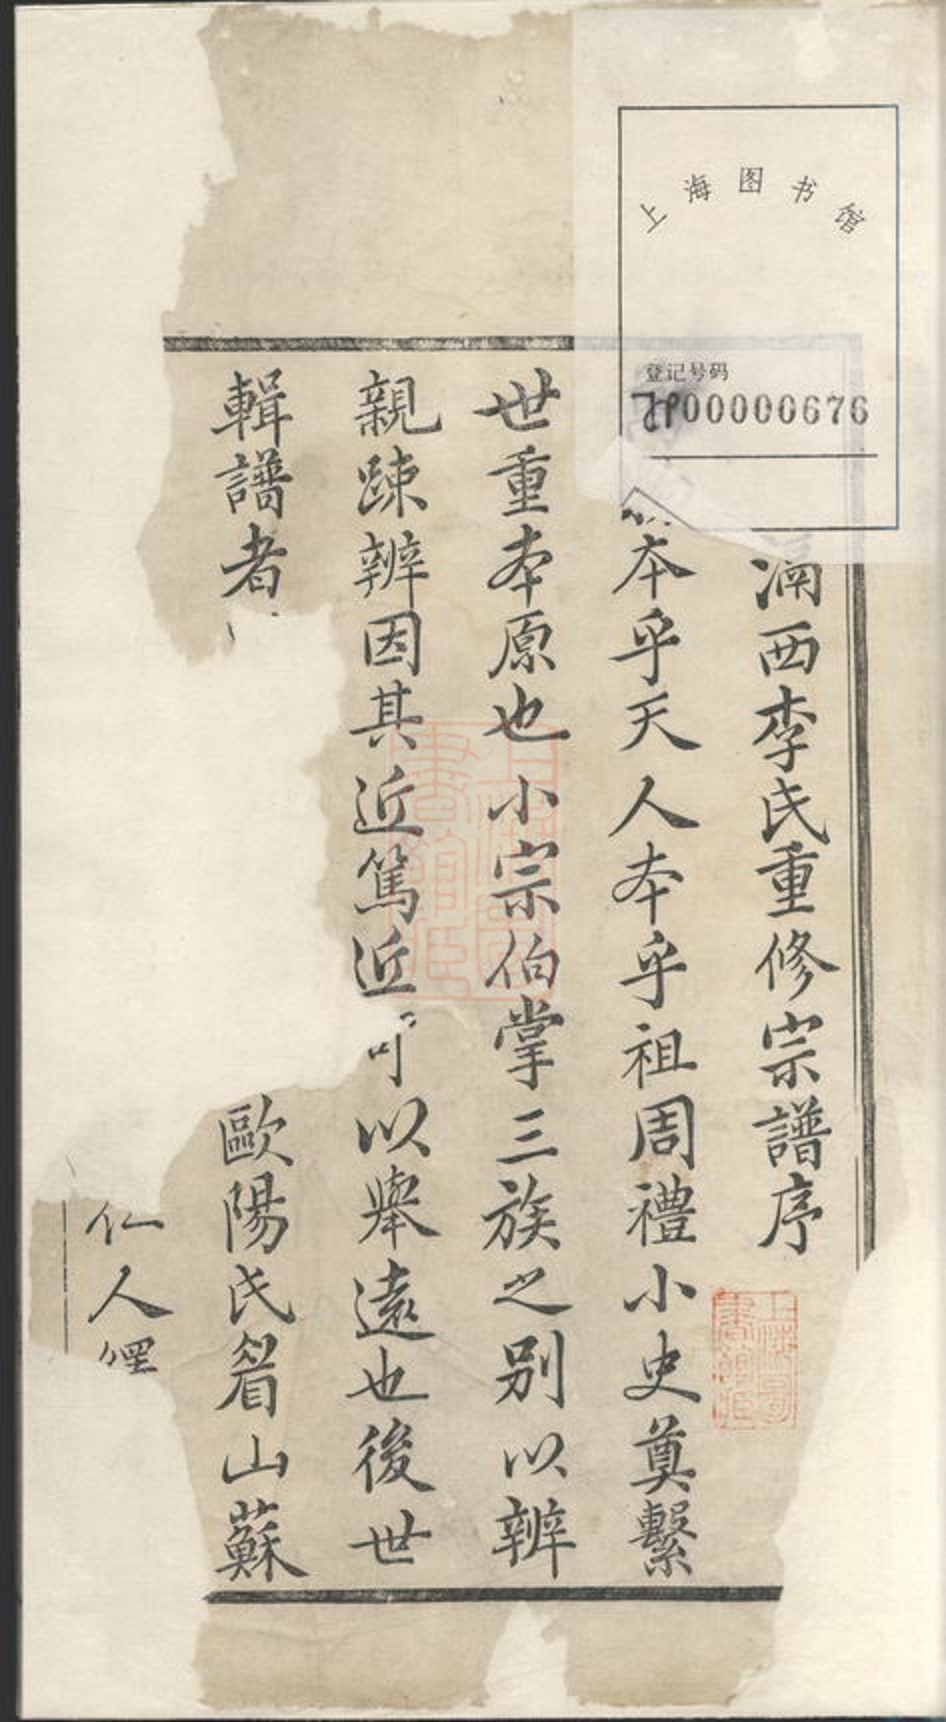 上海图书馆
登记号码
00000676
湍西李氏重修宗譜序
本乎天人本乎祖周禮小史奠繫
世重本原也小宗伯掌三族之別以辨
親踈辨因其近篤近可以舉遠也後世
輯譜者
歐陽氏眉山蘇
仁人